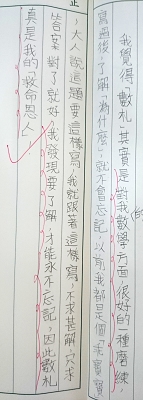 我覺得「數札」其實是對我數學方面很好的一種磨練
寫過後,了解「為什麼」,就不會忘記,以前我都是個「乖寶寶
」,大人說這題要這樣寫,我就跟著這樣寫,不求甚解,只求
答案對了就好,我發現要了解,才能永不忘記,因此數札
真是我的「救命恩人」